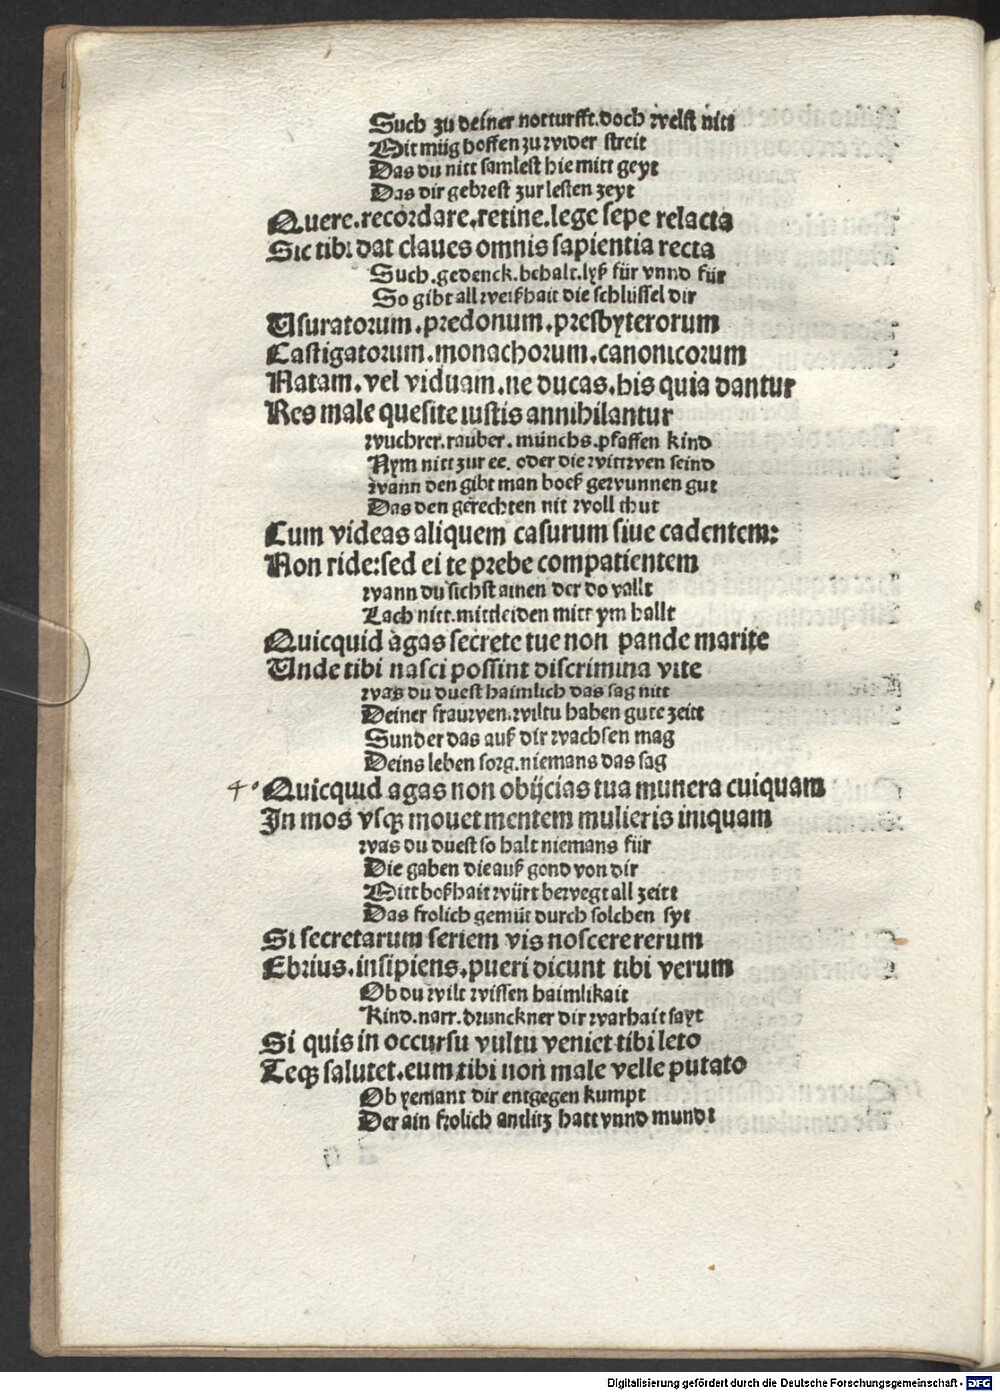 Such zu deiner notturfft.doch welst nitt
Mit müg hoffen zu wider streit
Das du nitt samlest hie mitt geyt
Das dir gebrest zur lesten zeyt
Quere.recordare.retine.lege sepe relacta
Sic tibi dat claues omnis sapientia recta
Such.gedenck.behalt.lyß für vnnd für
So gibt all weißhait die schlüssel dir
Usuratorum.predonum.presbyterorum
Castigatorum.monachorum.canonicorum
Natam.vel viduam.ne ducas.his quia dantur
Res male quesite iustis annihilantur
wuchrer.rauber.münchs.pfaffen kind
Nym nitt zur ee. oder die wittwen seind
wann den gibt man boeß gewunnen gut
Das den gerechten nit woll thut
Cum videas aliquem casurum siue cadentem:
Non ride:sed ei te prebe compatientem
wann du sichst ainen der do vallt
Lach nitt.mittleiden mitt ym hallt
Quicquid agas secrete tue non pande marite
Unde tibi nasci possint discrimina vite
was du duest haimlich das sag nitt
Deiner frauwen.wiltu haben gute zeitt
Sunder das auß dir wachsen mag
Deins leben sorg.niemans das sag
4° Quicquid agas non obijcias tua munera cuiquam
In mos vsqꝫ mouet mentem mulieris iniquam
was du duest so halt niemans für
Die gaben die auß gond von dir
Mitt boßhait würt bewegt all zeitt
Das frolich gemüt durch solchen syt
Si secretarum seriem vis noscere rerum
Ebrius.insipiens.pueri dicunt tibi verum
Ob du wilt wissen haimlikait
Kind.narr.drunckner dir warhait sayt
Si quis in occursu vultu veniet tibi leto
Teqꝫ salutet.eum tibi non male velle putato
Ob yemant dir entgegen kumpt
Der ain frolich antlitz hatt vnnd mundt
Digitalisierung gefördert durch die Deutsche Forschungsgemeinschaft - DFG